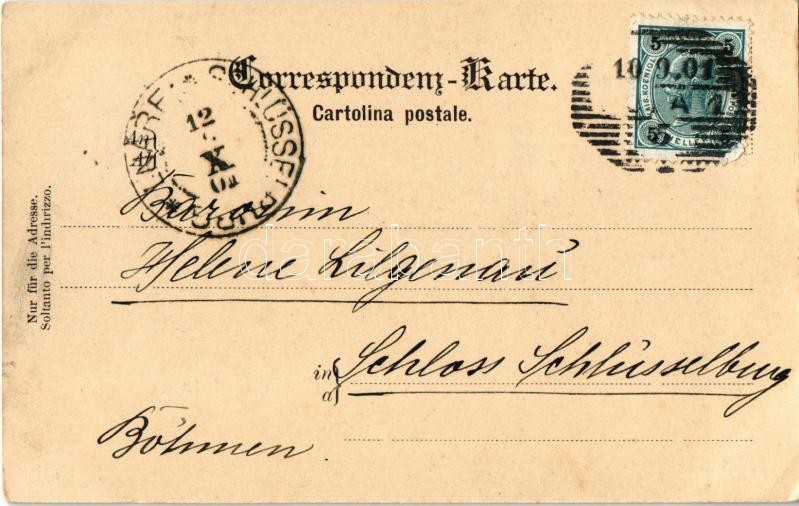 Correspondenz-Karte.
Cartolina postale.
Nur für die Adresse.
Soltanto per l'indirizzo.
An
All
5 5
5 5
10.9.01
12
X
01
SCHLÜSSELBURG
Baronin
Helene Lilgenau
in
a
Schloss Schlüsselburg
Böhmen
darabanth